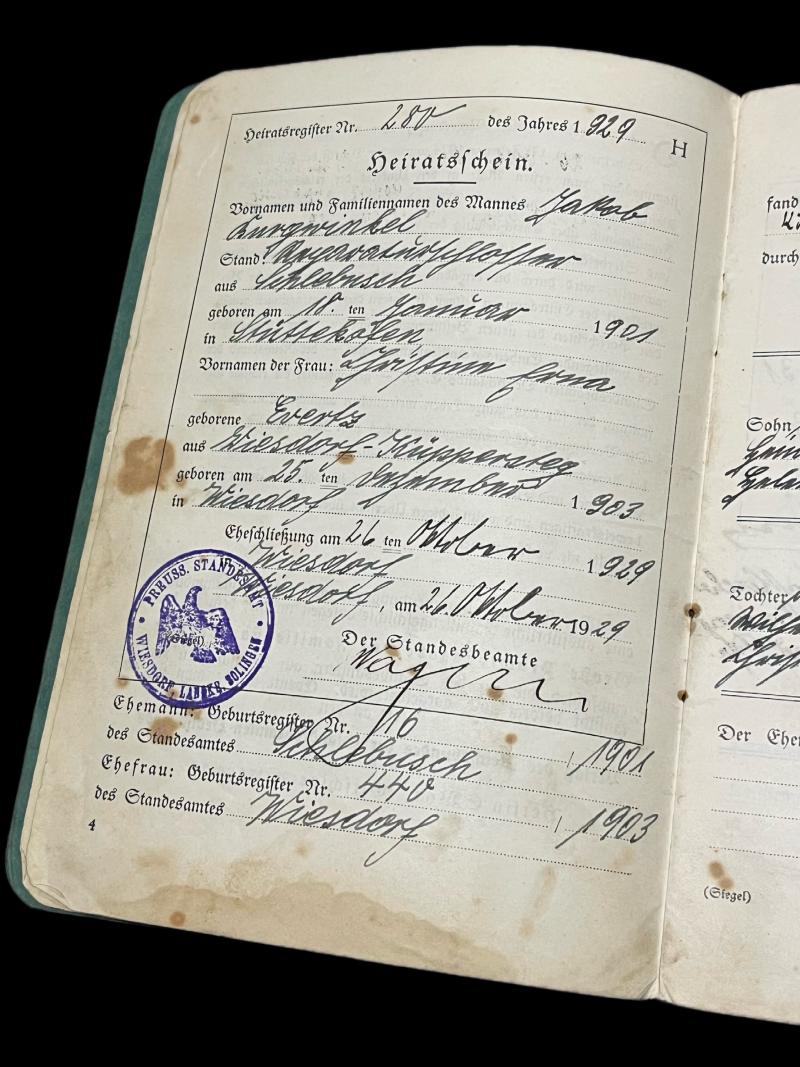 Heiratsregister Nr. 280 des Jahres 1 929
H
Heiratsschein.
Vornamen und Familiennamen des Mannes Jakob
Burgwinkel
Stand: Reparaturschlosser
aus Schlebusch
geboren am 18. ten Januar 1901
in
Vornamen der Frau: Christine Erna
geborene Evertz
aus Wiesdorf-Küppersteg
geboren am 25. ten Dezember 1 903
in Wiesdorf
Eheschließung am 26 ten Oktober 1 929
in Wiesdorf
Wiesdorf, am 26 Oktober 1929
PREUSS. STANDESAMT
(Siegel)
WIESDORF, LANDKR. SOLINGEN
Der Standesbeamte
Wagner
Ehemann: Geburtsregister Nr. 16
des Standesamtes Schlebusch / 1901
Ehefrau: Geburtsregister Nr. 440
des Standesamtes Wiesdorf / 1903
4
fand
durch
Sohn
Tochter
Der Ehem
(Siegel)